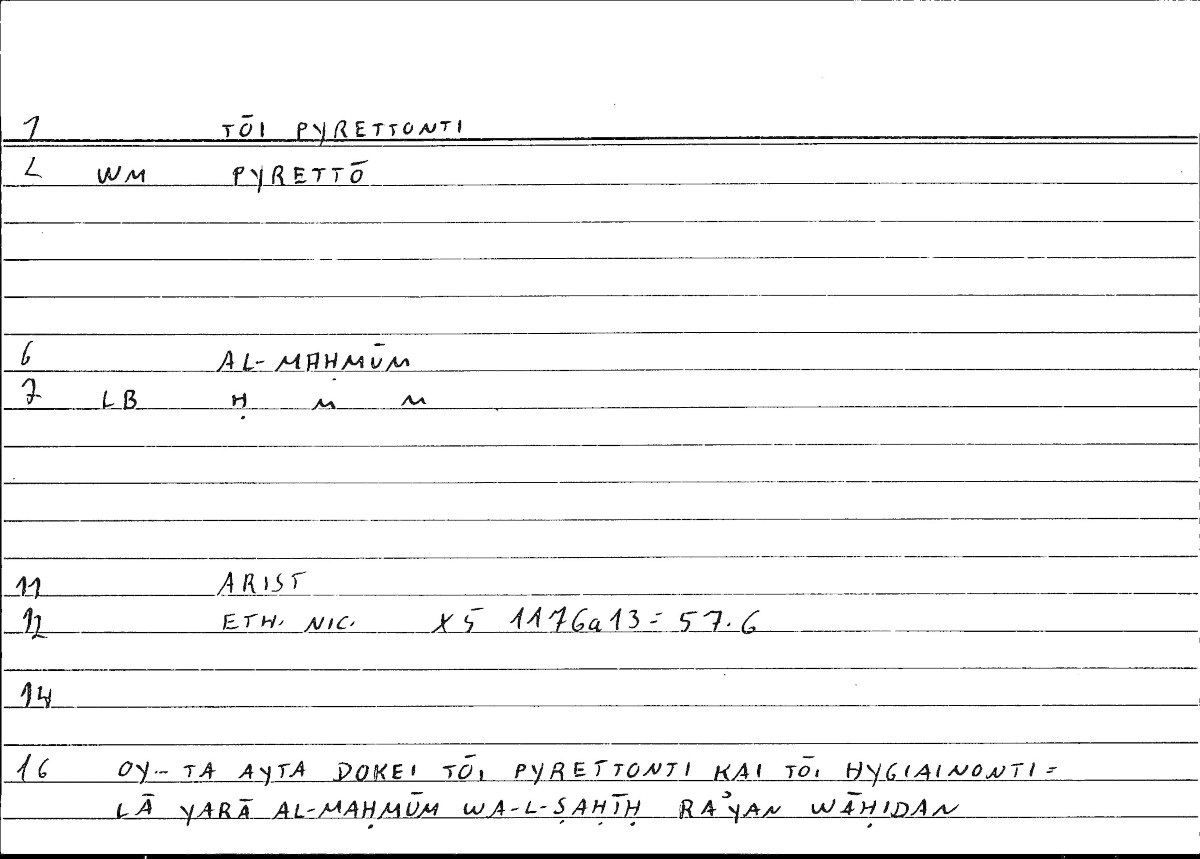 1 TŌI PYRETTONTI
2 WM PYRETTŌ
6 AL-MAḤMŪM
7 LB Ḥ M M
11 ARIST
12 ETH. NIC. X5 1176a13 = 57.6
14
16 OY-TA AYTA DOKEI TŌI PYRETTONTI KAI TŌI HYGIAINONTI =
LĀ YARĀ AL-MAḤMŪM WA-L-ṢAḤĪḤ RAʾYAN WĀḤIDAN